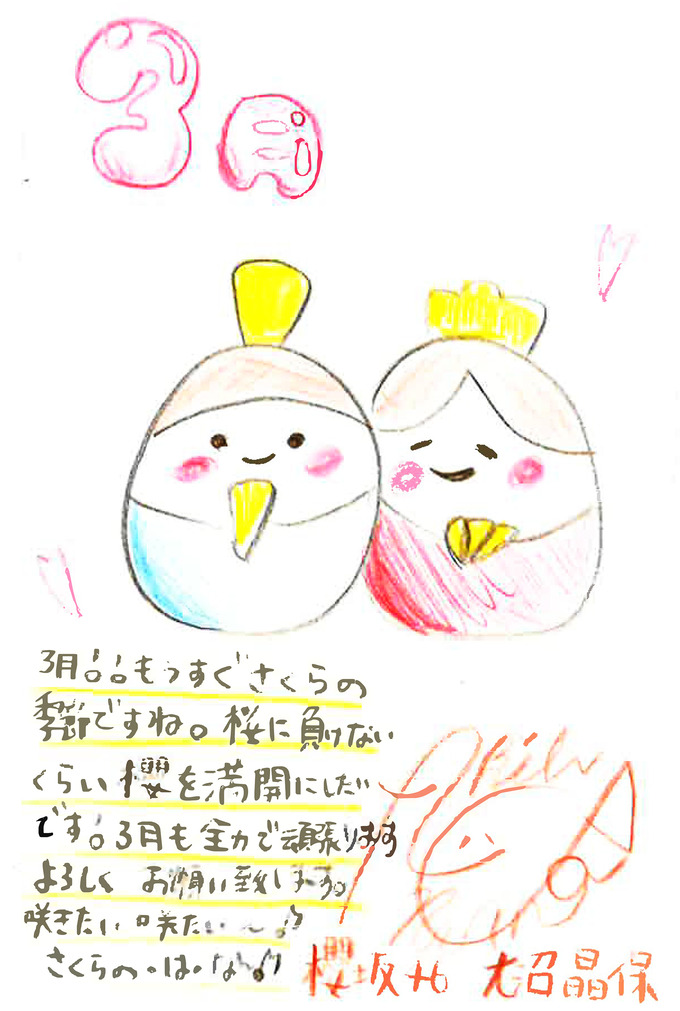 3月
3月!!もうすぐさくらの
季節ですね。桜に負けない
くらい櫻を満開にしたい
です。3月も全力で頑張ります
よろしくお願い致します。
咲きたい咲たい〜♪
さくらの・は・な♪
櫻坂46 大沼晶保